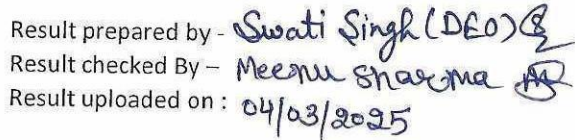 Result prepared by - Swati Singh (DEO)
Result checked By – Meenu Sharma
Result uploaded on : 04/03/2025